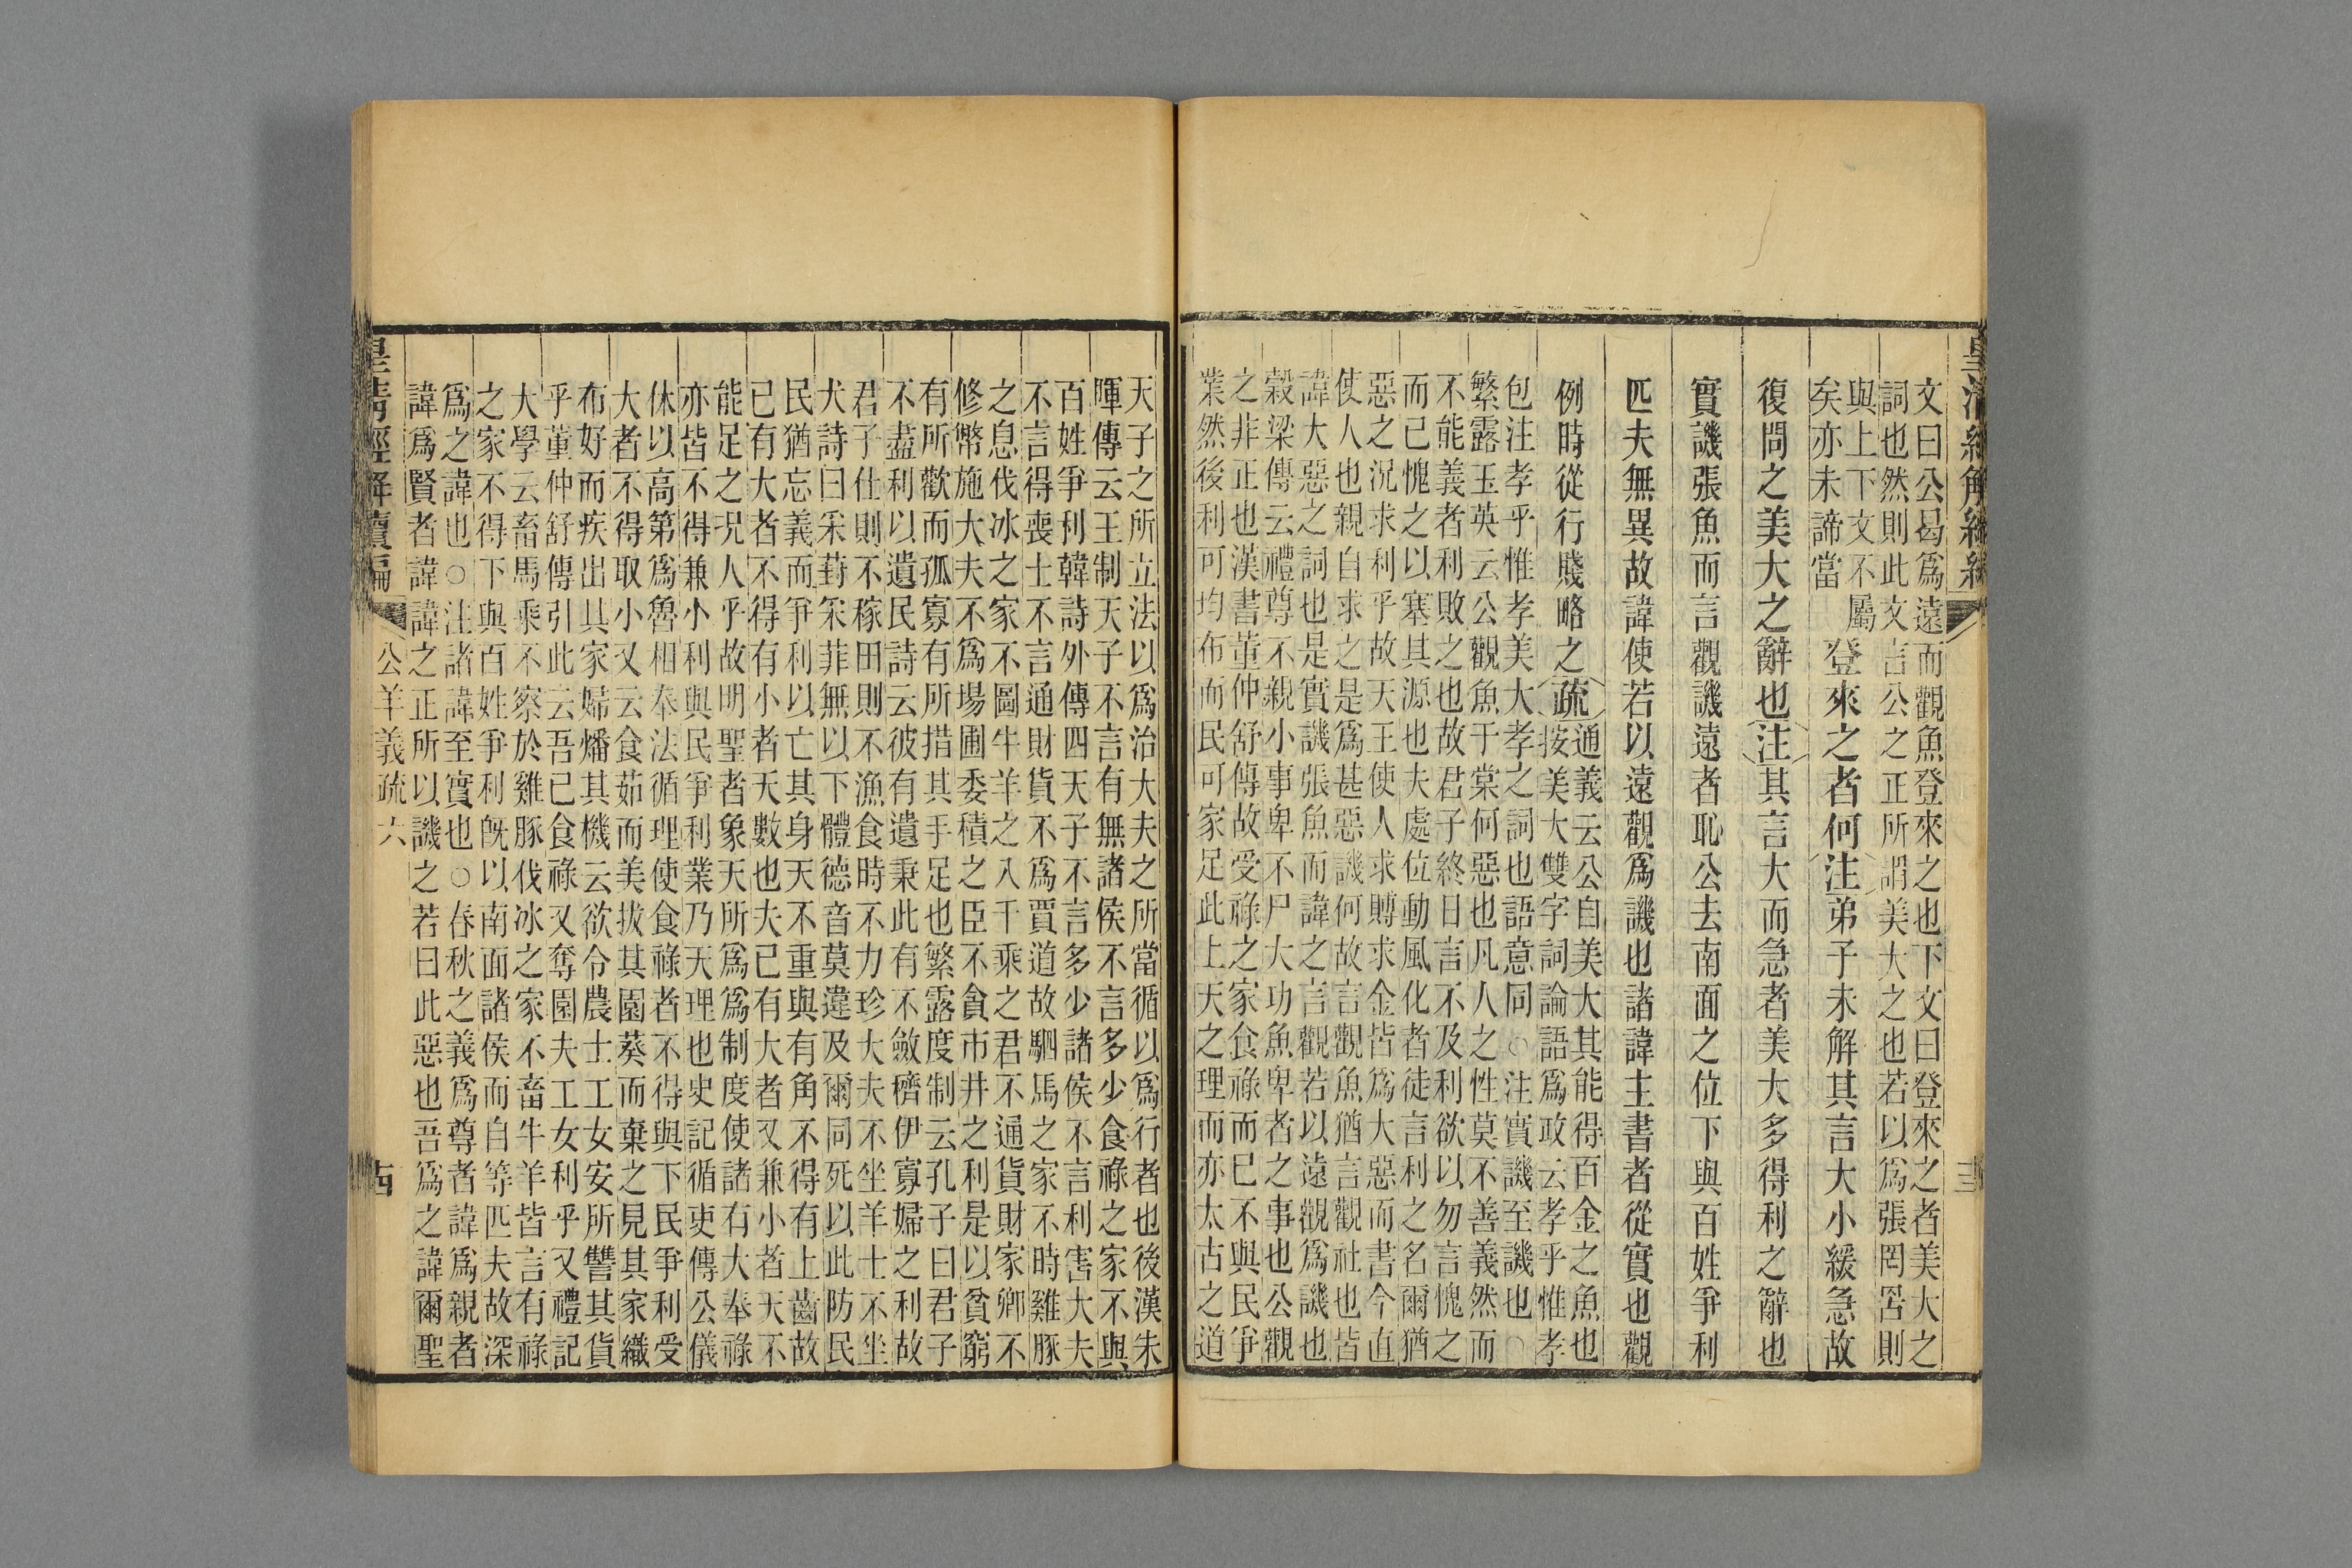 皇清經解續編
文曰公曷爲遠而觀魚登來之也下文曰登來之者美大之
詞也然則此文言公之正所謂美大之也若以爲張罔罟則
與上下文不屬
矣亦未諦當
登來之者何注弟子未解其言大小緩急故
復問之美大之辭也注其言大而急者美大多得利之辭也
實譏張魚而言觀譏遠者恥公去南面之位下與百姓爭利
匹夫無異故諱使若以遠觀爲譏也諸諱主書者從實也觀
例時從行賤略之疏
通義云公自美大其能得百金之魚也
按美大雙字詞論語爲政云孝乎惟孝
包注孝乎惟孝美大孝之詞也語意同○注實譏至譏也○
繁露玉英云公觀魚于棠何惡也凡人之性莫不善義然而
不能義者利敗之也故君子終日言不及利欲以勿言愧之
而已愧之以塞其源也夫處位動風化者徒言利之名爾猶
惡之況求利乎故天王使人求賻求金皆爲大惡而書今直
使人也親自求之是爲甚惡譏何故言觀魚猶言觀社也皆
諱大惡之詞也是實譏張魚而諱之言觀若以遠觀爲譏也
榖梁傳云禮尊不親小事卑不尸大功魚卑者之事也公觀
之非正也漢書董仲舒傳故受祿之家食祿而已不與民爭
業然後利可均布而民可家足此上天之理而亦太古之道
天子之所立法以爲治大夫之所當循以爲行者也後漢朱
暉傳云王制天子不言有無諸侯不言多少食祿之家不與
百姓爭利韓詩外傳四天子不言多少諸侯不言利害大夫
不言得喪士不言通財貨不爲賈道故駟馬之家不時雞豚
之息伐冰之家不圖牛羊之入千乘之君不通貨財家卿不
修幣施大夫不爲場圃委積之臣不貪市井之利是以貧窮
有所歡而孤寡有所措其手足也繁露度制云孔子曰君子
不盡利以遺民詩云彼有遺秉此有不斂穧伊寡婦之利故
君子仕則不稼田則不漁食時不力珍大夫不坐羊士不坐
犬詩曰采葑采菲無以下體德音莫違及爾同死以此防民
民猶忘義而爭利以亡其身天不重與有角不得有上齒故
已有大者不得有小者天數也夫已有大者又兼小者天不
能足之況人乎故明聖者象天所爲爲制度使諸有大奉祿
亦皆不得兼小利與民爭利業乃天理也史記循吏傳公儀
休以高第爲魯相奉法循理使食祿者不得與下民爭利受
大者不得取小又云食茹而美拔其園葵而棄之見其家織
布好而疾出其家婦燔其機云欲令農士工女安所讐其貨
乎董仲舒傳引此云吾已食祿又奪園夫工女利乎又禮記
大學云畜馬乘不察於雞豚伐冰之家不畜牛羊皆言有祿
之家不得下與百姓爭利旣以南面諸侯而自等匹夫故深
爲之諱也○注諸諱至實也○春秋之義爲尊者諱爲親者
諱爲賢者諱諱之正所以譏之若曰此惡也吾爲之諱爾聖
皇清經解續編 公羊義疏六